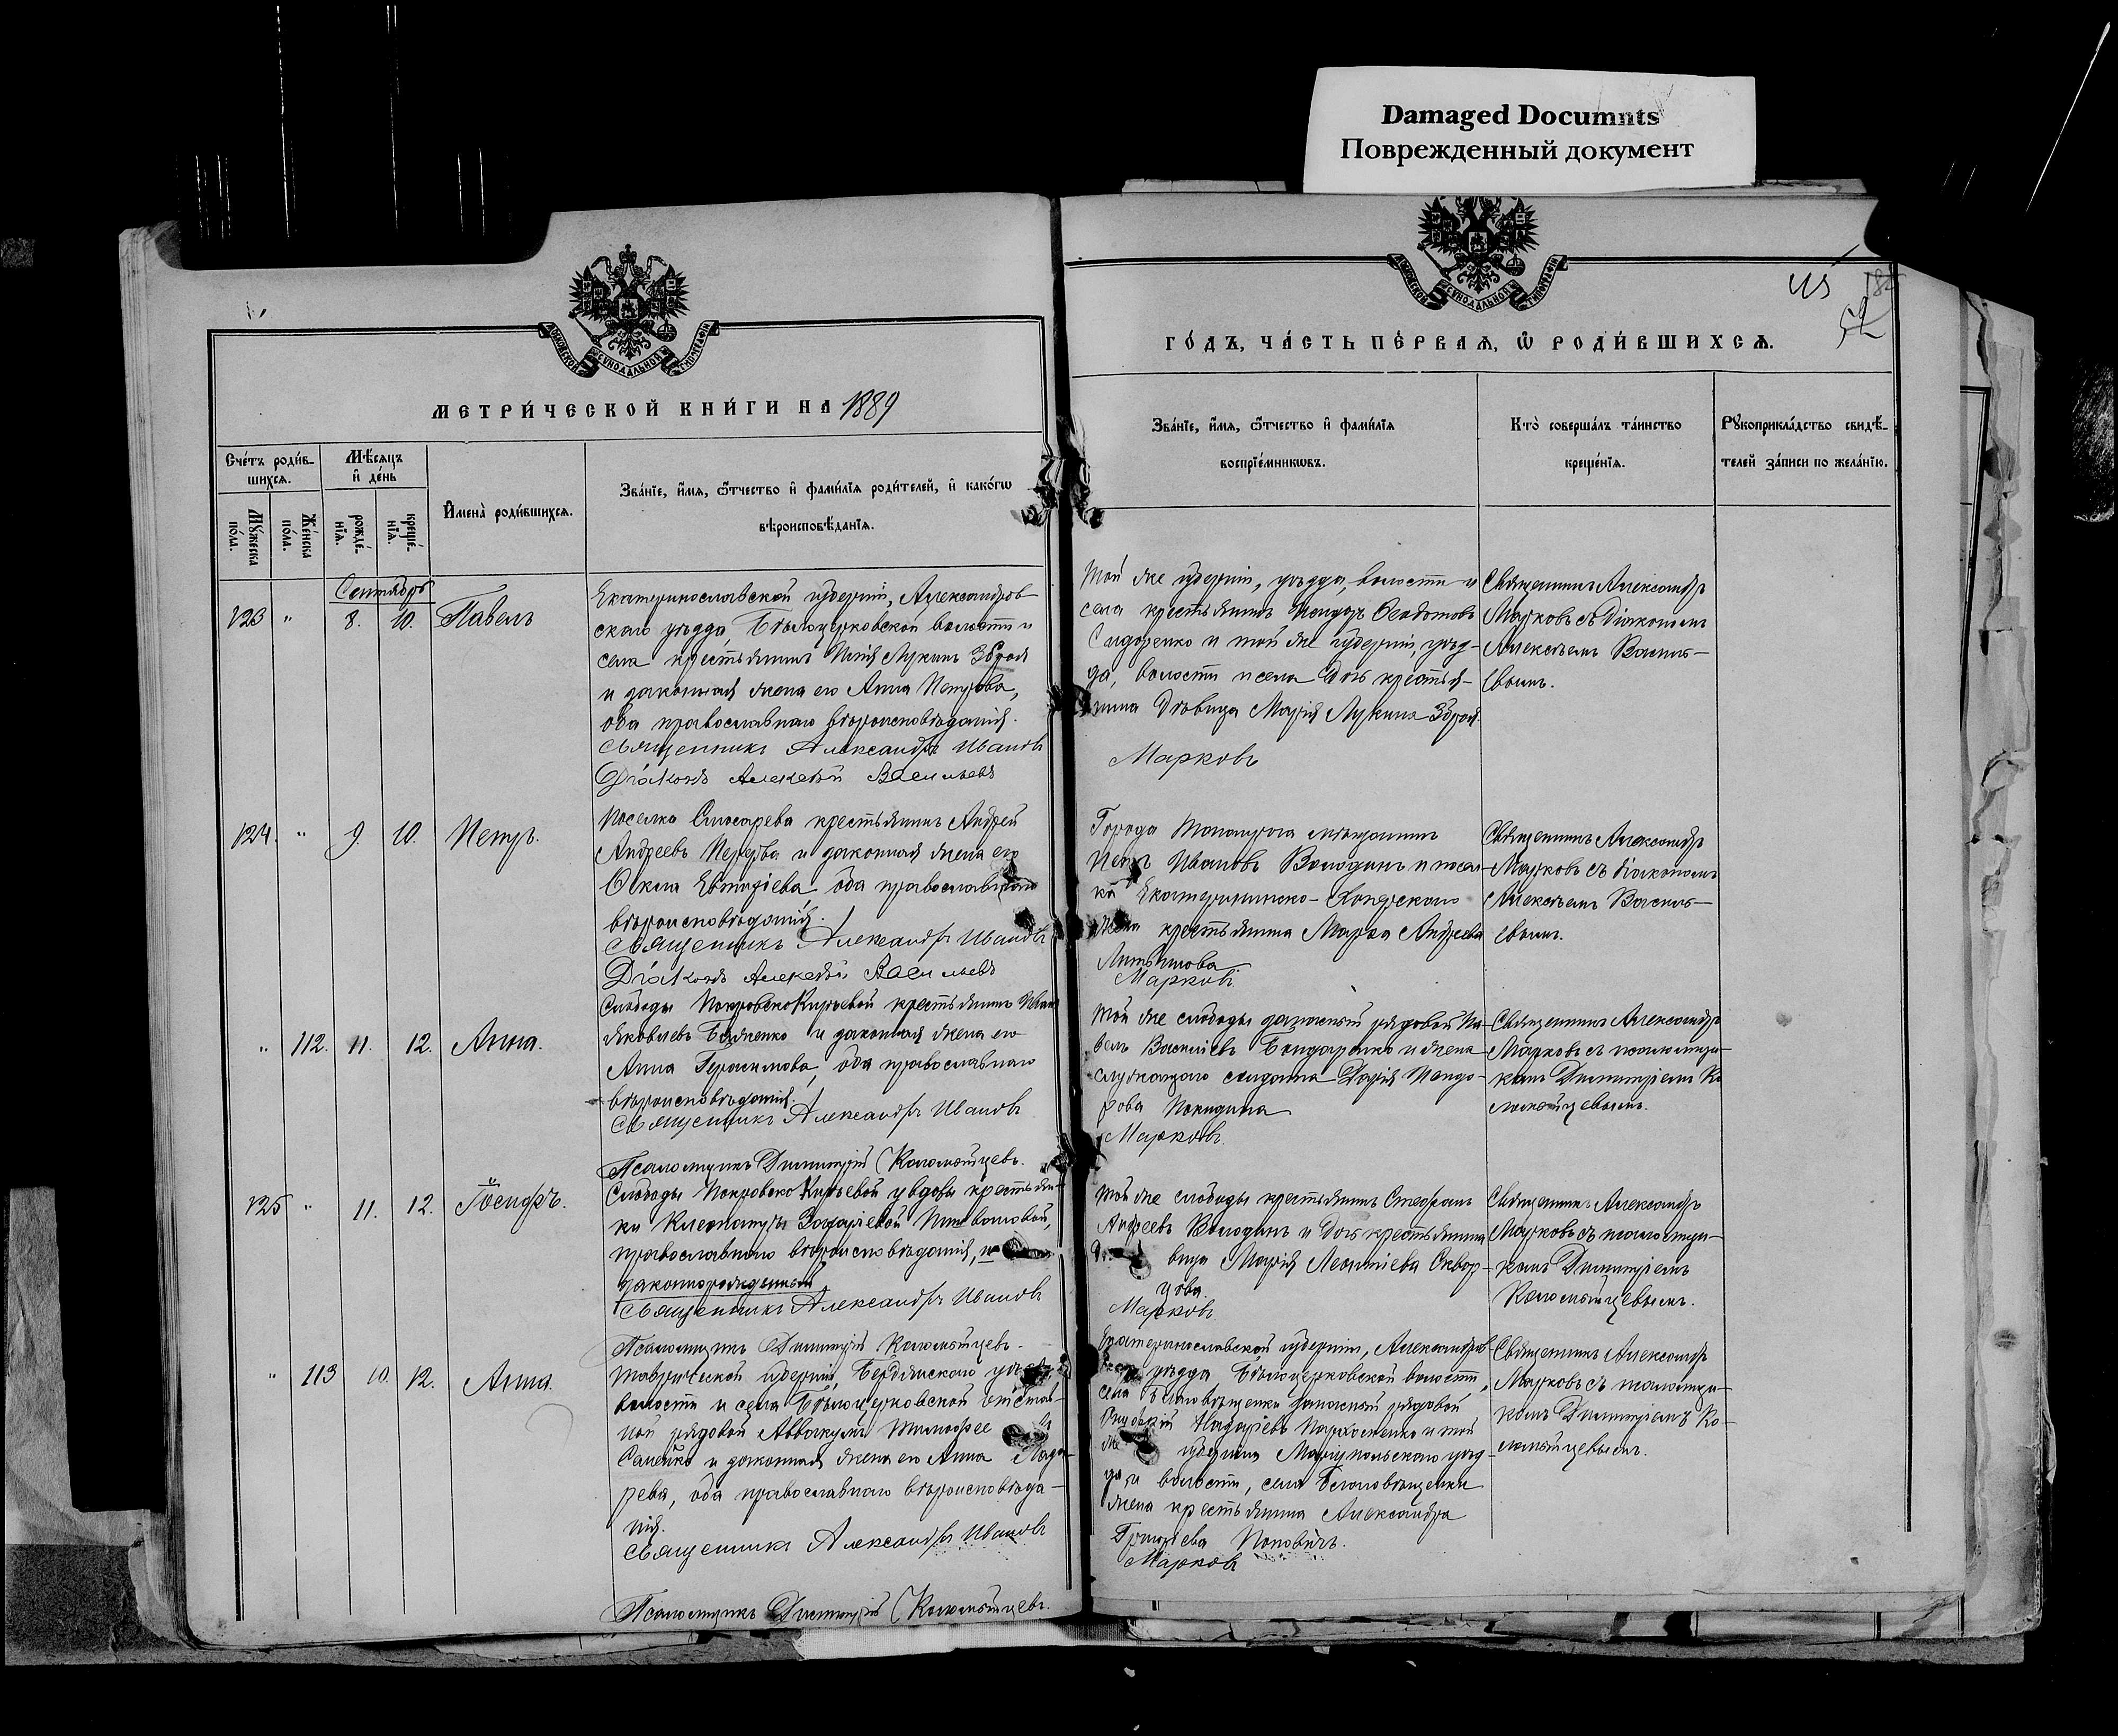 Damaged Documnts
Поврежденный документ
МОСКОВСКОЙ СѴНОДАЛЬНОЙ ТИПОГРАФІИ
МЕТРИ́ЧЕСКОЙ КНИ́ГИ НА 1889
Сче́тъ роди́в-
шихсѧ.
Мѣ́сѧцъ
и҆ де́нь
Мꙋ́жеска по́ла.
Же́нска по́ла.
рожде́-нїѧ.
креще́-нїѧ.
И҆мена̀ роди́вшихсѧ.
Зва́нїе, и҆́мѧ, ѻ҆́тчество и҆ фами́лїѧ роди́телей, и҆ како́гѡ
вѣроисповѣ́данїѧ.
Сентябрь
123 " 8. 10. Павелъ
Екатеринославской губерніи, Александров
скаго уѣзда, Бѣлоцерковской волости и
села крестьянинъ Илія Лукинъ Зброя
и законная жена его Анна Петрова,
оба православнаго вѣроисповѣданія.
Священникъ Александръ Ивановъ
Діаконъ Алексѣй Васильевъ
124. " 9. 10. Петръ.
поселка Слюсарева крестьянинъ Андрей
Андреевъ Перерва и законная жена его
Ѳекла Евтихіева оба православнаго
вѣроисповѣданія.
Священникъ Александръ Ивановъ
Діаконъ Алексѣй Васильевъ
" 112. 11. 12. Анна.
Слободы Покровско Кирѣевой крестьянинъ Иванъ
Яковлевъ и законная жена его
Анна Герасимова, оба православнаго
вѣроисповѣданія.
Священникъ Александръ Ивановъ
Псаломщикъ Димитрій Коломѣйцевъ.
125 " 11. 12. Іосифъ.
Слободы Покровско Кирѣевой у вдовы крестьян-
ки Клеопатры Захаріевой
православнаго вѣроисповѣданія, не
законнорожденный
Священникъ Александръ Ивановъ
Псаломщикъ Димитрій Коломѣйцевъ.
" 113 10. 12. Анна.
Таврической губерніи, Бердянскаго уѣзда,
волости и села Бѣлоцерковской отстав-
ной рядовой Аввакумъ Тимофее
Саленко и законная жена его Анна Лаза-
рева, оба православнаго вѣроисповѣда-
нія.
Священникъ Александръ Ивановъ
Псаломщикъ Димитрій Коломѣйцевъ.
МОСКОВСКОЙ СѴНОДАЛЬНОЙ ТИПОГРАФІИ
ГО́ДЪ, ЧА́СТЬ ПЕ́РВАѦ, Ѡ҆ РОДИ́ВШИХСѦ.
Зва́нїе, и҆́мѧ, ѻ҆́тчество и҆ фами́лїѧ
воспрїе́мникѡвъ.
Кто̀ соверша́лъ та́инство
креще́нїѧ.
Рꙋкоприкла́дство свидѣ́-
телей за́писи по жела́нїю.
Той же губерніи, уѣзда, волости и
села крестьянинъ Исидоръ Ѳеодотовъ
Сидоренко и той же губерніи, уѣз-
да, волости и села дочь крестья-
нина дѣвица Марія Лукина Зброя.
Марковъ
Священникъ Александръ
Марковъ съ діакономъ
Алексѣемъ Василь-
евымъ.
Города Таганрога мѣщанинъ
Петръ Ивановъ Володинъ и посел-
ка Екатерининско-Хопрскаго
жена крестьянина Марѳа Андреева
Литвинова
Марковъ
Священникъ Александръ
Марковъ съ діакономъ
Алексѣемъ Василь-
евымъ.
Той же слободы запасный рядовой Па-
велъ Васильевъ Бондаренко и жена
служащаго солдата Дарія Исидо-
рова
Марковъ.
Священникъ Александръ
Марковъ съ псаломщи-
комъ Димитріемъ Ко
ломѣйцевымъ.
Той же слободы крестьянинъ Стефанъ
Андреевъ Володинъ и дочь крестьянина
вица Марія Леонтіева Сквор-
цова.
Марковъ
Священникъ Александръ
Марковъ съ псаломщи-
комъ Димитріемъ
Коломѣйцевымъ.
Екатеринославской губерніи, Александров
уѣзда, Бѣлоцерковской волости,
села Благовѣщенки запасный рядовой
Назаріевъ Пархоменко и той
же губерніи Маріупольскаго уѣз-
да и волости, села Благовѣщенки
жена крестьянина Александра
Григоріева Поповичъ.
Марковъ
Священникъ Александръ
Марковъ съ псаломщи-
комъ Димитріемъ Ко-
ломѣйцевымъ.